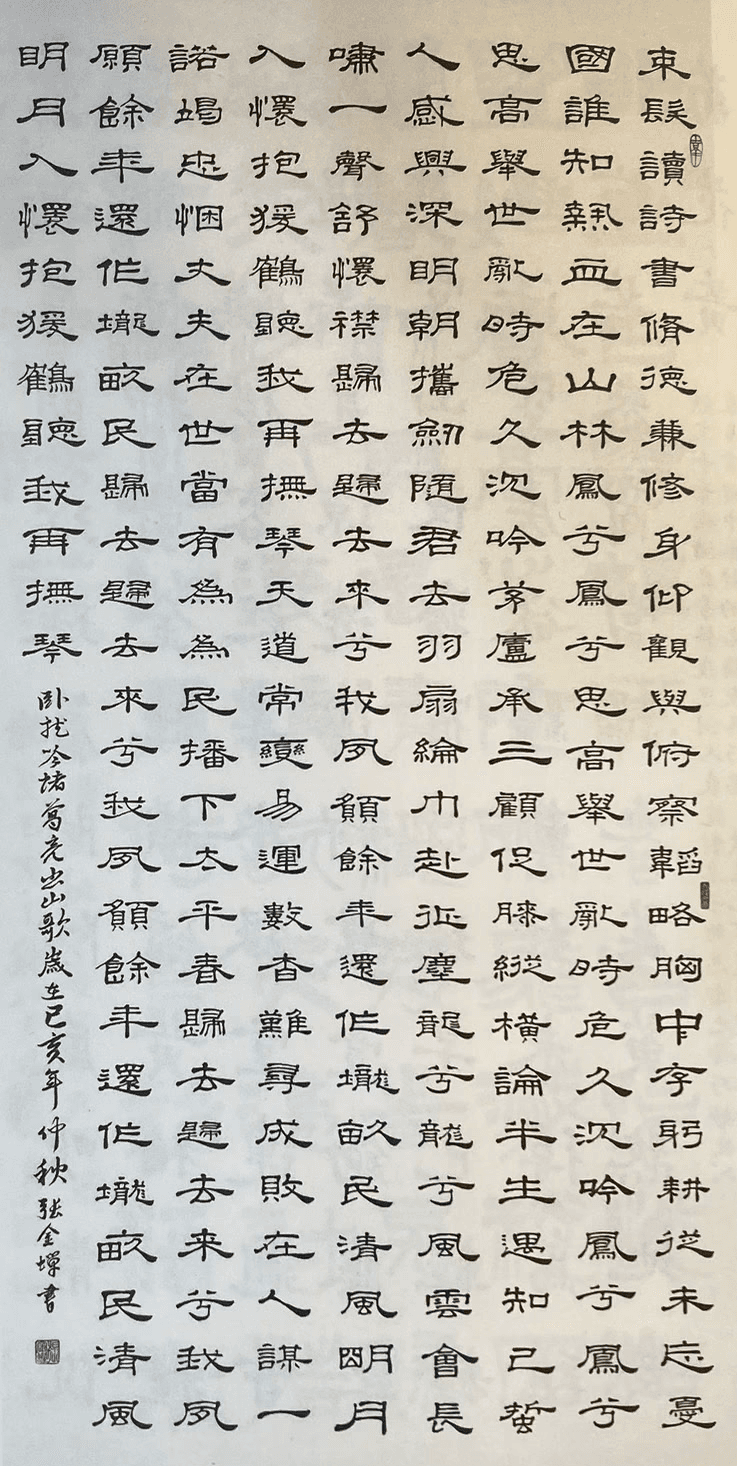 束髮讀詩書脩德兼修身仰觀與俯察韜略胸中存躬耕從未忘憂
國誰知熱血在山林鳳兮鳳兮思高舉世亂時危久沉吟鳳兮鳳兮
思高舉世亂時危久沉吟茅廬承三顧促膝縱橫論半生遇知己蟄
人感興深明朝攜劍隨君去羽扇綸巾赴征塵龍兮龍兮風雲會長
嘯一聲舒懷襟歸去歸去來兮我夙願餘年還作壠畝民清風明月
入懷抱猨鶴聽我再撫琴天道常變易運數杳難尋成敗在人謀一
諾竭忠悃丈夫在世當有為為民播下太平春歸去歸去来兮我夙
願餘年還作壠畝民歸去歸去來兮我夙願餘年還作壠畝民清風
明月入懷抱猨鶴聽我再撫琴
卧龙吟諸葛亮出山歌歲在己亥年仲秋張金墠書